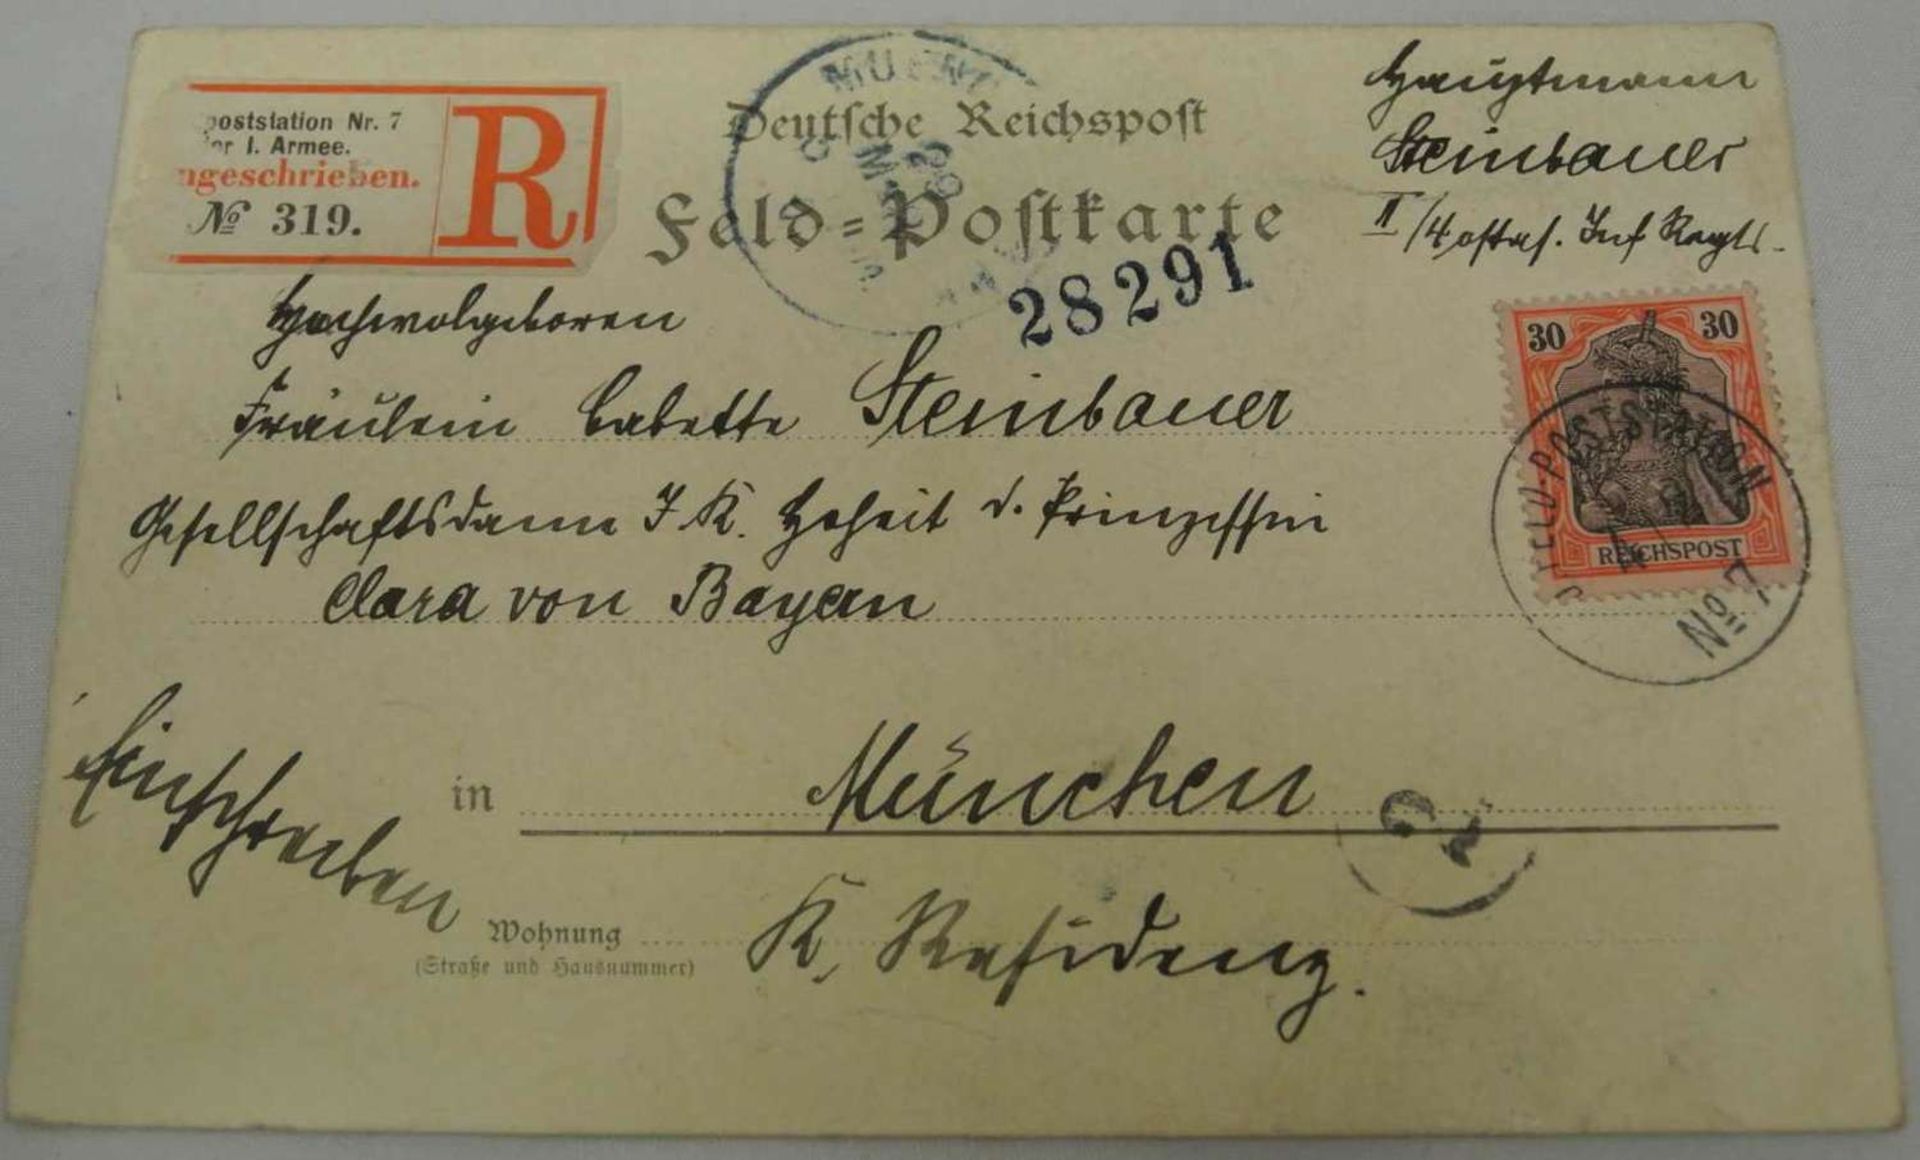 poststation Nr. 7
er I. Armee.
ngeschrieben.
№ 319.
R
Deutsche Reichspost
Feld=Postkarte
28291
Hauptmann
Steinbauer
II/4 ostas. Inf Regts.
30 30
REICHSPOST
FELD-POSTSTATION
No 7
Hochwolgeboren
Fräulein Babette Steinbauer
Gesellschaftsdame I. K. Hoheit d. Prinzessin
Clara von Bayern
Einschreiben
in München
Wohnung K. Residenz.
(Straße und Hausnummer)